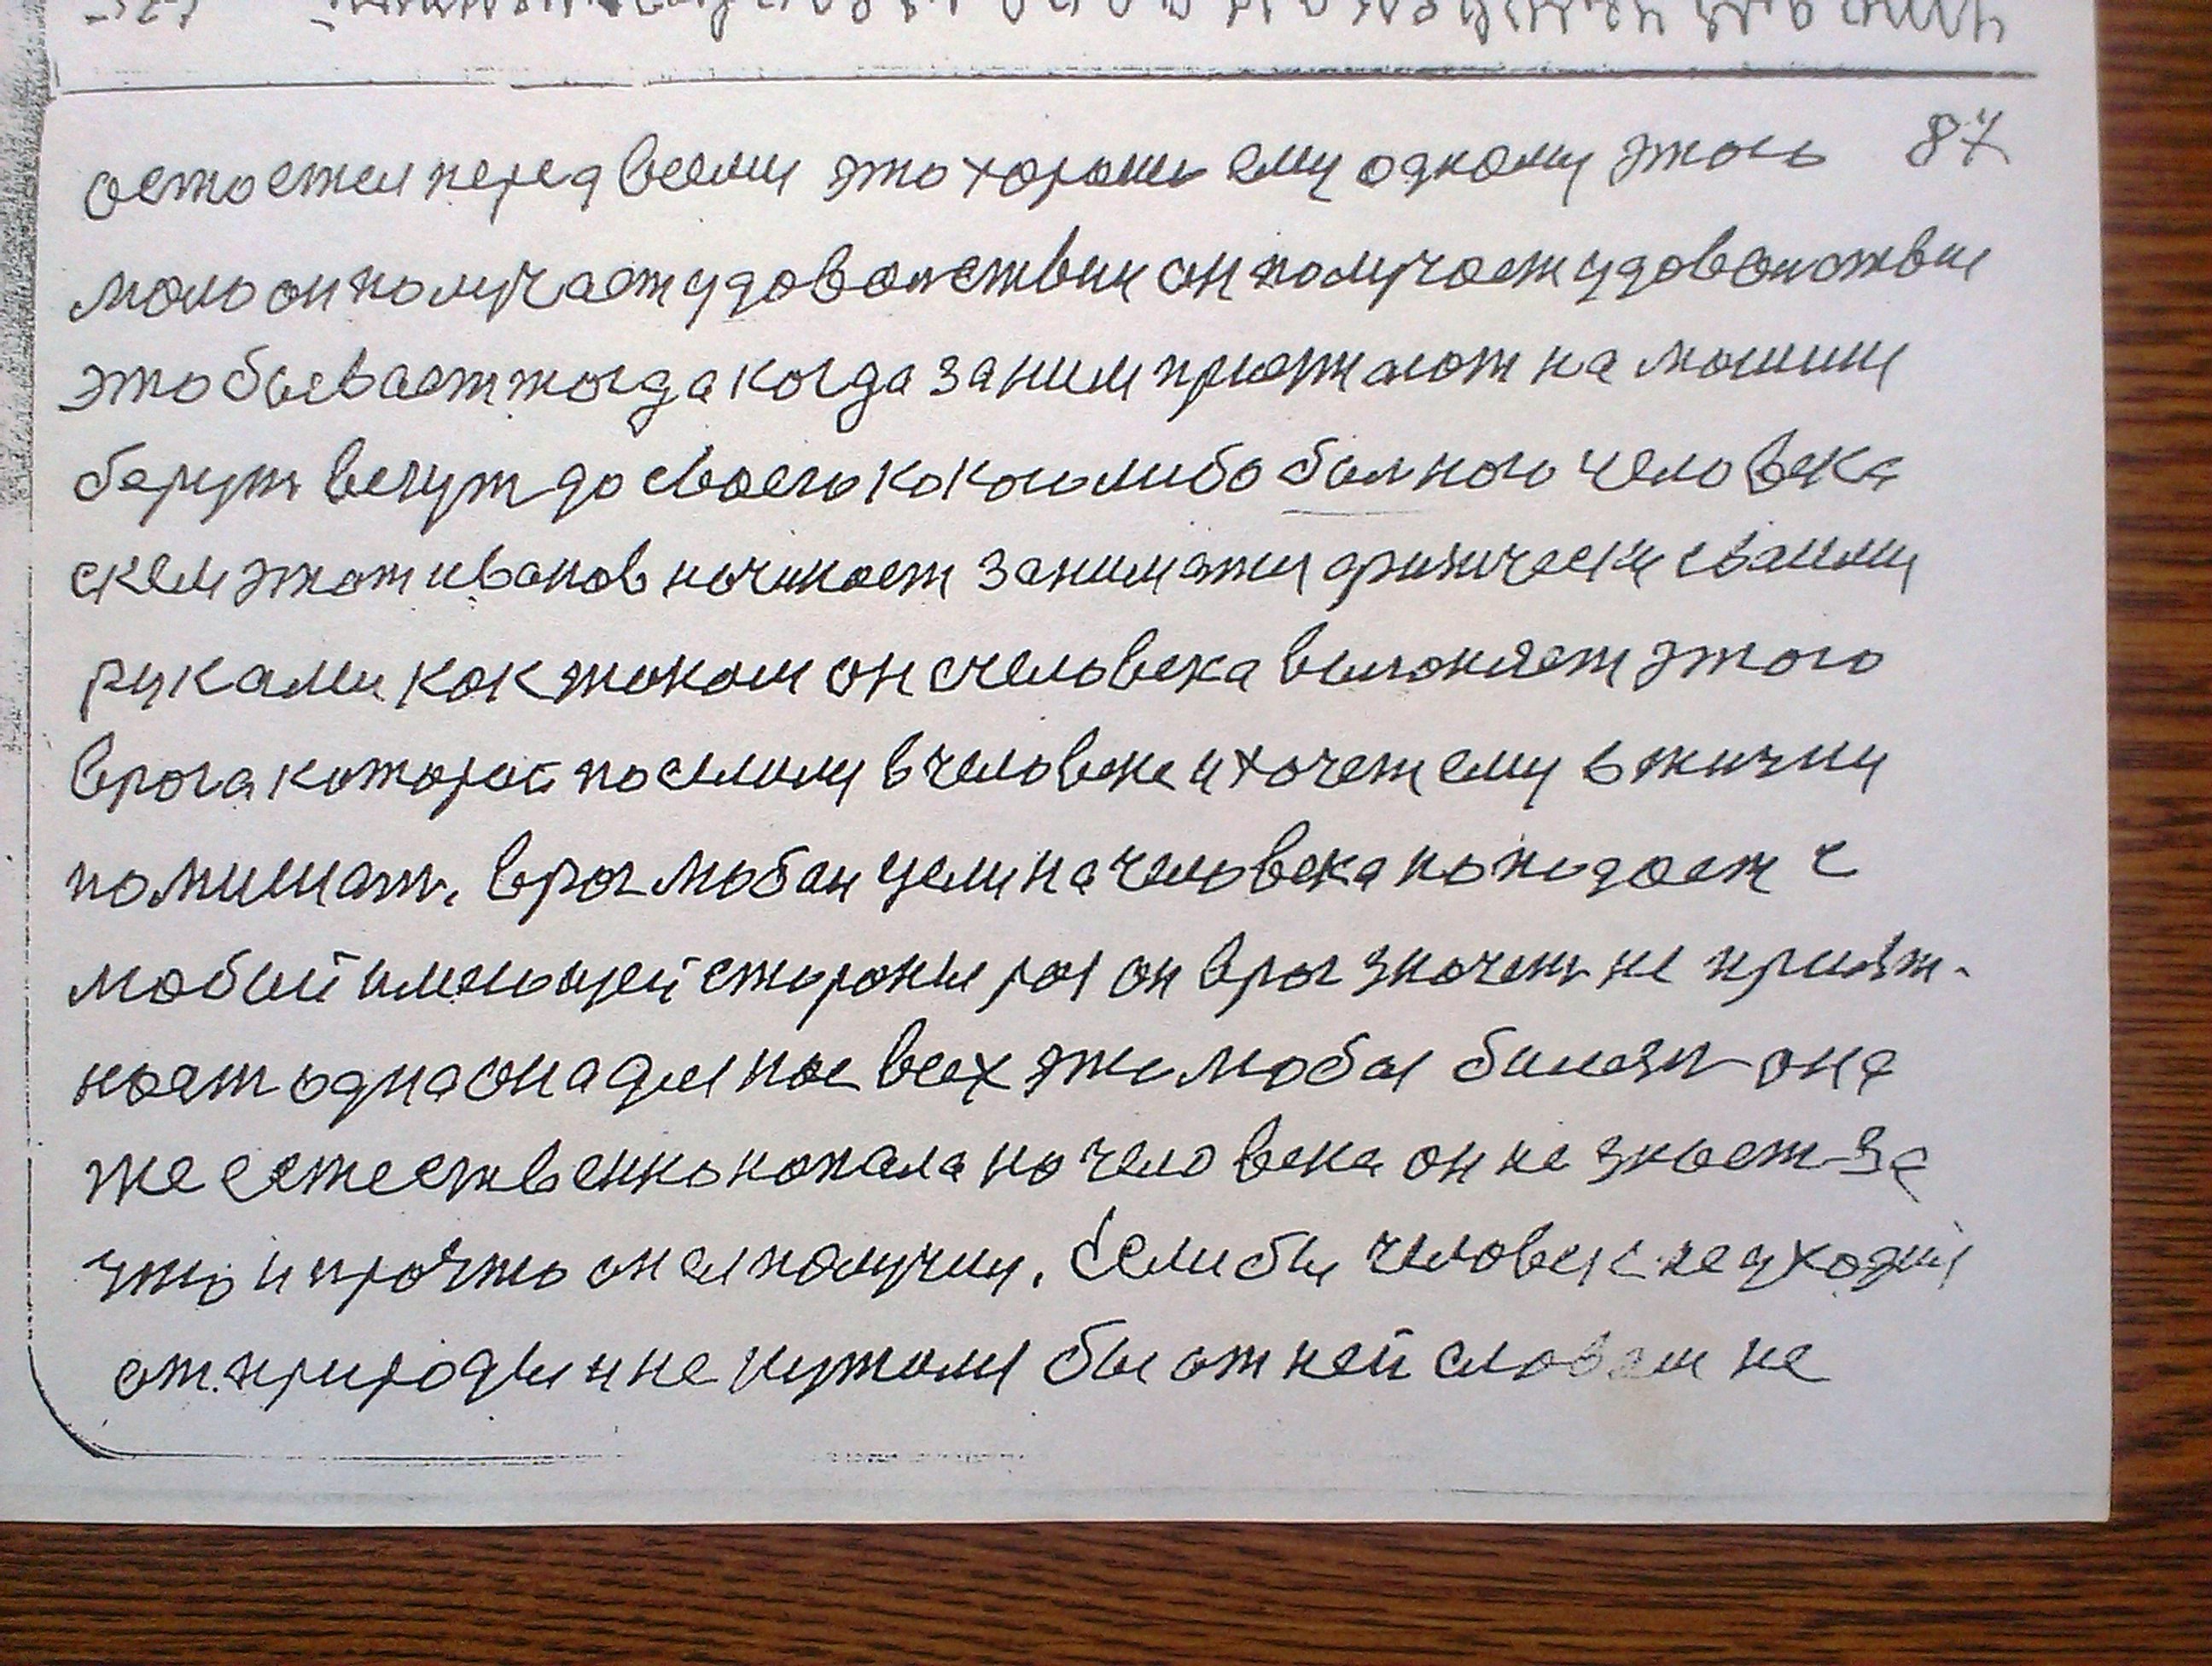 87
остоется перед всеми это хорошо ему одному этого
мало он получает удоволствии он получает удоволствие
это бывает тогда когда за ним приежают на машини
берут везут до своего кокого либо болного человека
с кем этот иванов начинает заниматси физически своими
руками как током он с человека выгоняет этого
врога которой поселилси в человеке и хочет ему в жизни
помишат. враг любои цели на человека нападает с
любый имеющей стороны раз он враг значет не прият-
ност одна она для нас всех это любая болезн она
же естественно напала на человека он не знает за
что и про что он ея получил. Если бы человек не уходил
от природы и не путался бы от ней словам не